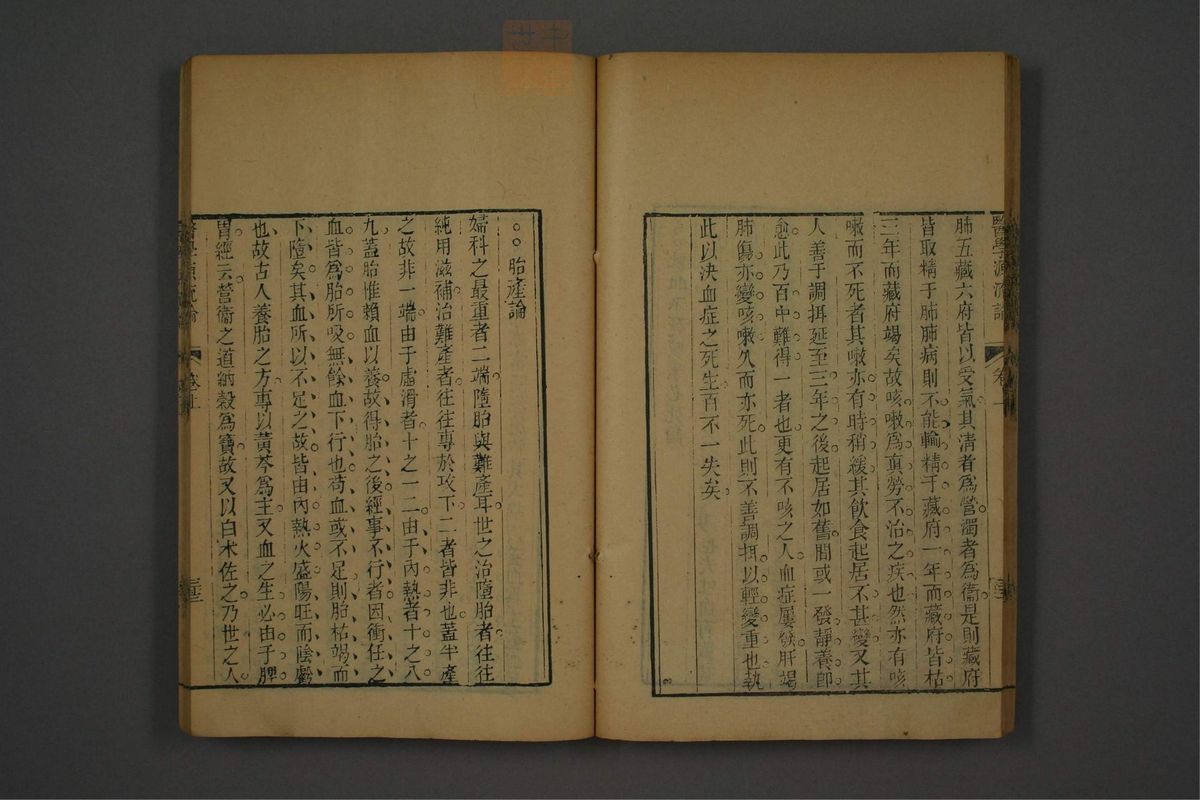 肺五藏六府皆以受氣其清者爲營濁者爲衞是則藏府
皆取精于肺肺病則不能輸精于藏府一年而藏府皆枯
三年而藏府竭矣故咳嗽爲眞勞不治之疾也然亦有咳
嗽而不死者其嗽亦有時稍緩其飮食起居不甚變又其
人善于調攝延至三年之後起居如舊間或一發靜養卽
愈此乃百中難得一者也更有不咳之人血症屢發肝竭
肺傷亦變咳嗽久而亦死此則不善調攝以輕變重也執
此以決血症之死生百不一失矣
胎產論
婦科之最重者二端墮胎與難產耳世之治墮胎者往往
純用滋補治難產者往往專於攻下二者皆非也蓋半產
之故非一端由于虛滑者十之一二由于內熱者十之八
九蓋胎惟賴血以養故得胎之後經事不行者因衝任之
血皆爲胎所吸無餘血下行也苟血或不足則胎枯竭而
下墮矣其血所以不足之故皆由內熱火盛陽旺而陰虧
也故古人養胎之方專以黃芩爲主又血之生必由于脾
胃經云營衞之道納穀爲寶故又以白朮佐之乃世之人
醫學源流論 卷上